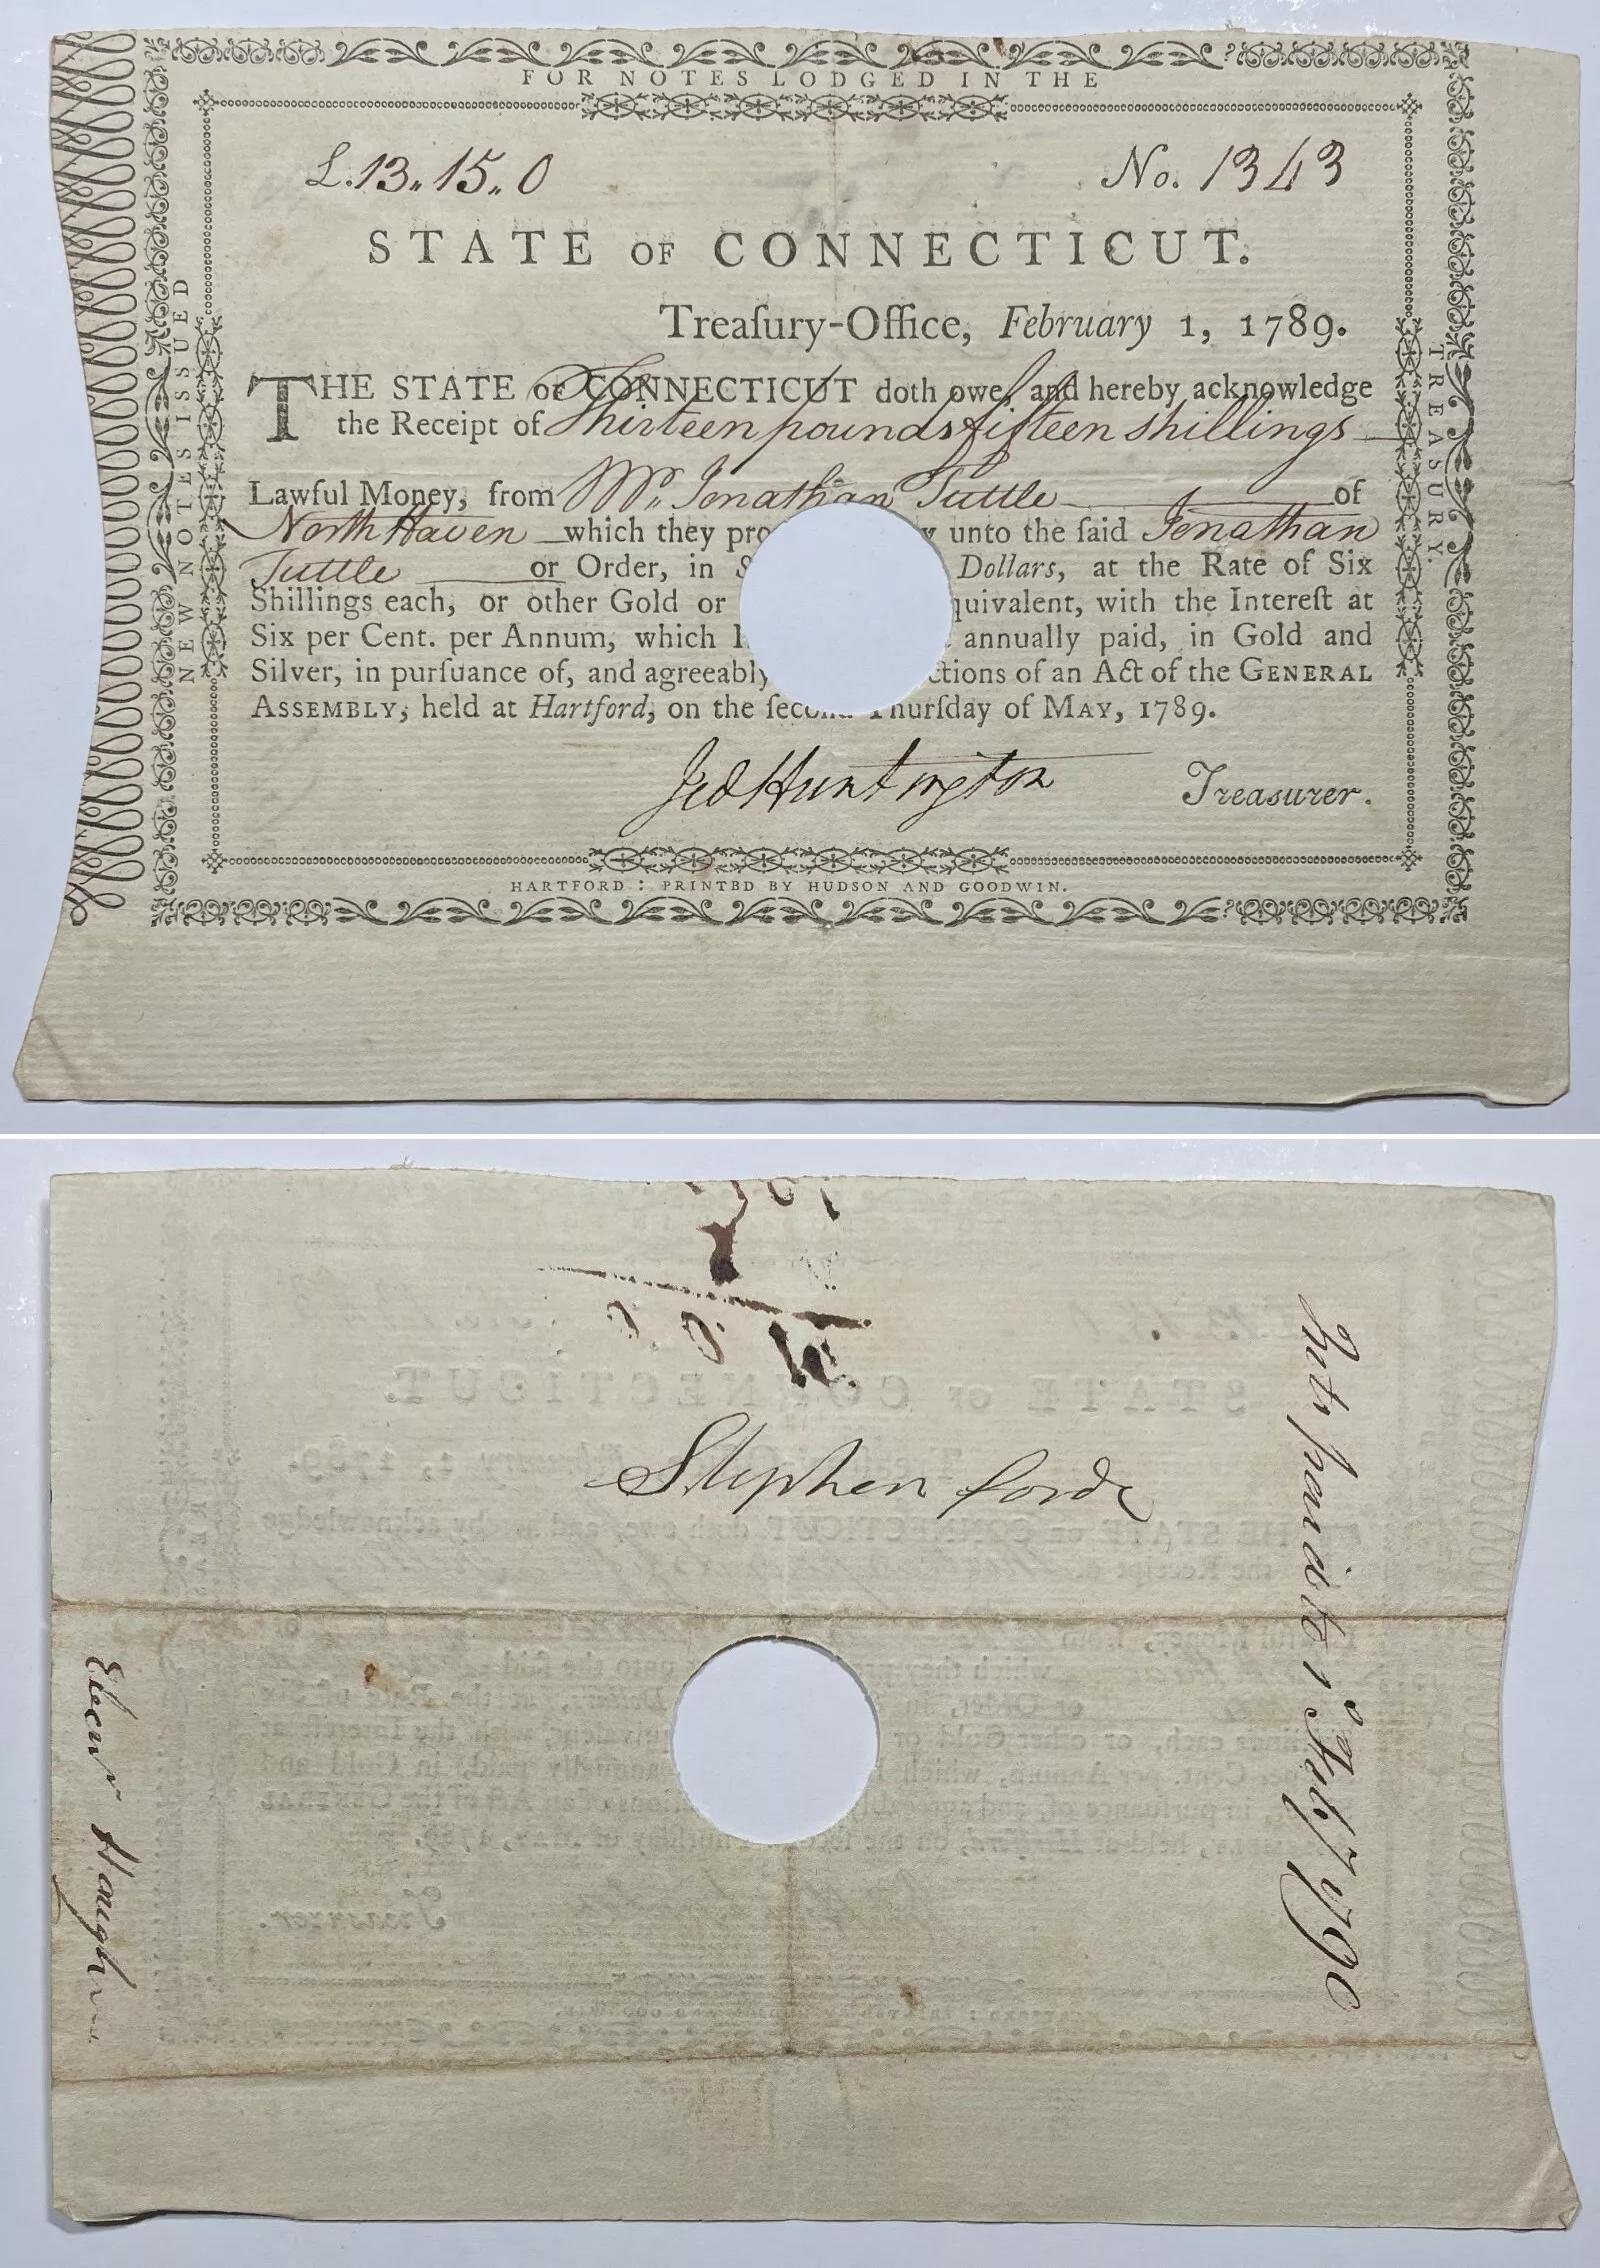 FOR NOTES LODGED IN THE
NEW NOTES ISSUED
TREASURY.
L.13.. 15.. 0
No. 1343
STATE OF CONNECTICUT.
Treaſury-Office, February 1, 1789.
THE STATE OF CONNECTICUT doth owe, and hereby acknowledge
the Receipt of Thirteen pounds fifteen shillings
Lawful Money, from Mr. Jonathan Tuttle of
North Haven which they pro y unto the ſaid Jonathan
Tuttle or Order, in S Dollars, at the Rate of Six
Shillings each, or other Gold or quivalent, with the Intereſt at
Six per Cent. per Annum, which I annually paid, in Gold and
Silver, in purſuance of, and agreeably ctions of an Act of the GENERAL
ASSEMBLY, held at Hartford, on the ſecond Thurſday of MAY, 1789.
Jed Huntington Treasurer.
HARTFORD: PRINTBD BY HUDSON AND GOODWIN.
Stephen ford
Ints paid to 1o Feby 1790